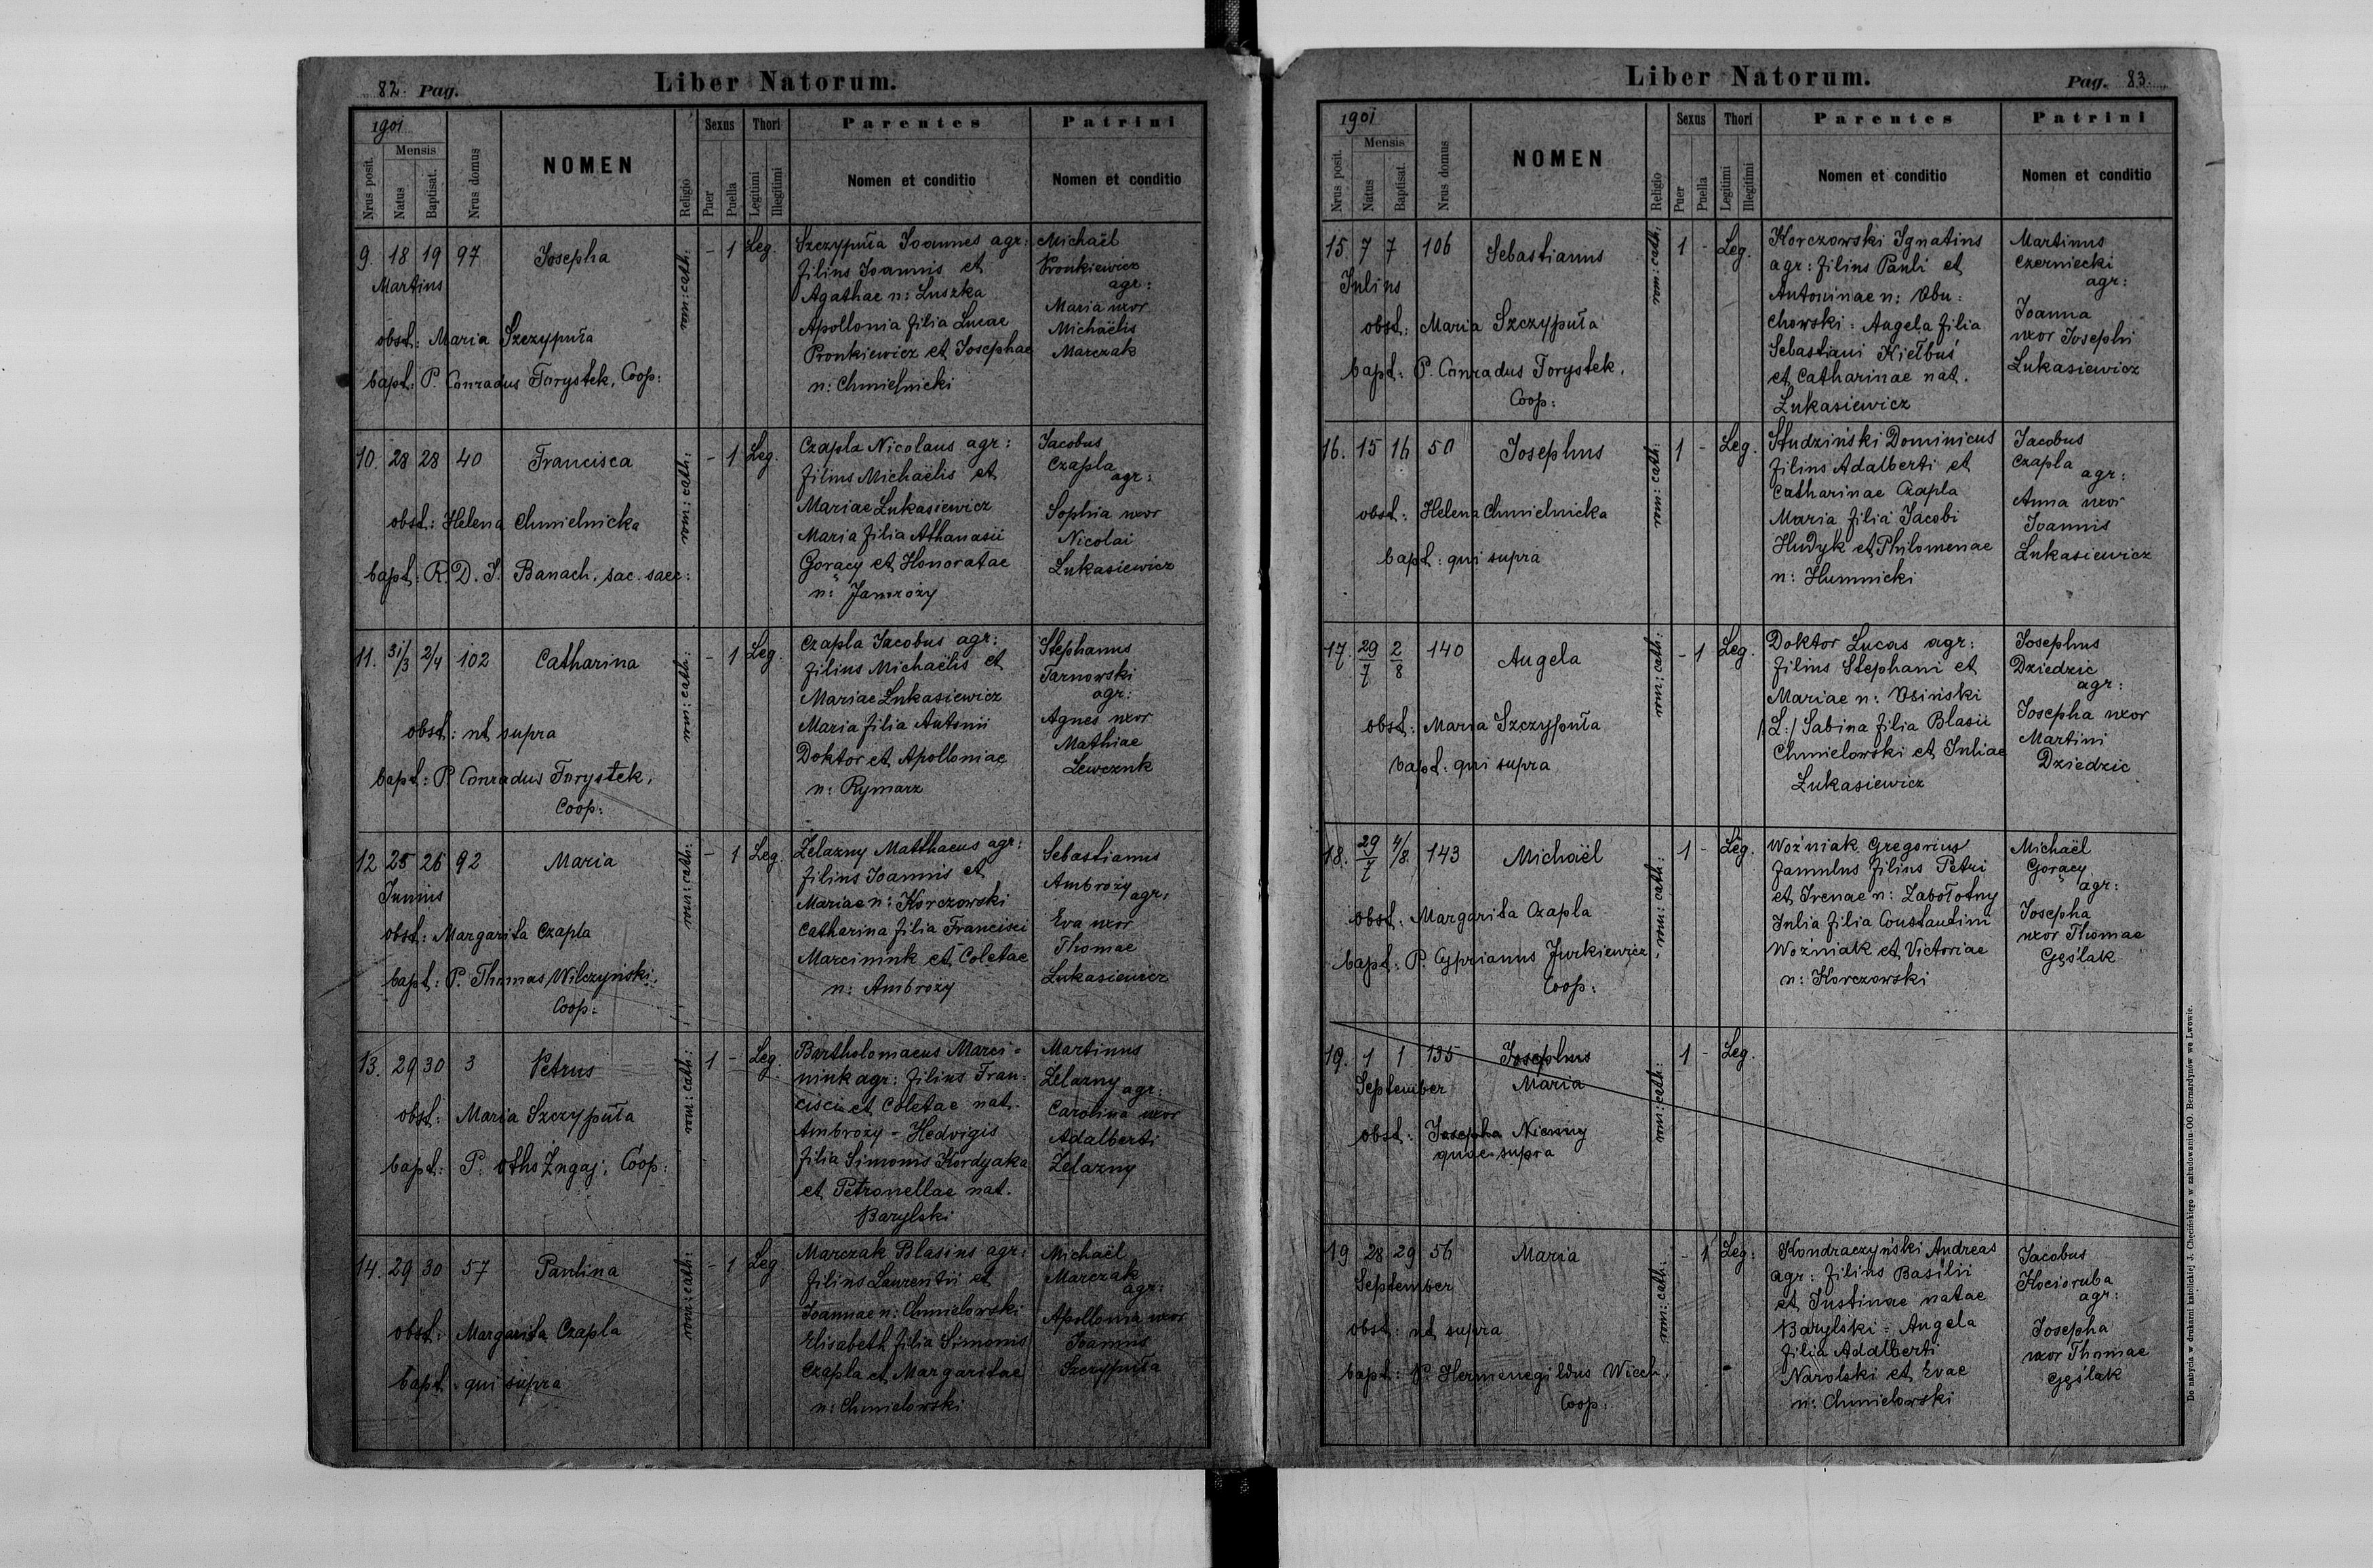 82. Pag.
Liber Natorum.
1901
Nrus posit.
Mensis
Natus
Baptisat.
Nrus domus
NOMEN
Religio
Sexus
Puer
Puella
Thori
Legitimi
Illegitimi
Parentes
Nomen et conditio
Patrini
Nomen et conditio
9. 18 19 97 Josepha
Martius
obst: Maria Szczypuła
bapt: P. Conradus Turystek, Coop:
rom: cath:
- 1 Leg.
Szczypuła Joannes agr:
filius Joannis et
Agathae n: Luszka
Apollonia filia Lucae
Pronkiewicz et Josephae
n: Chmielnicki
Michaël
Pronkiewicz
agr:
Maria uxor
Michaëlis
Marczak
10. 28 28 40 Francisca
obst: Helena Chmielnicka
bapt: R. D. J. Banach, sac. saec:
rom: cath:
- 1 Leg.
Czapla Nicolaus agr:
filius Michaëlis et
Mariae Łukasiewicz
Maria filia Athanasii
Gorący et Honoratae
n: Jamroży
Jacobus
Czapla
agr:
Sophia uxor
Nicolai
Łukasiewicz
11. 31/3 2/4 102 Catharina
obst: ut supra
bapt: P. Conradus Turystek,
Coop:
rom: cath:
- 1 Leg.
Czapla Jacobus agr:
filius Michaëlis et
Mariae Łukasiewicz
Maria filia Antonii
Doktor et Apolloniae
n: Rymarz
Stephanus
Tarnowski
agr:
Agnes uxor
Mathiae
Lewczuk
12 25 26 92 Maria
Junius
obst: Margarita Czapla
bapt: P. Thomas Wilczyński,
Coop:
rom: cath:
- 1 Leg.
Żelazny Matthaeus agr:
filius Joannis et
Mariae n: Korczowski
Catharina filia Francisci
Marciniuk et Coletae
n: Ambroży
Sebastianus
Ambroży agr:
Eva uxor
Thomae
Łukasiewicz
13. 29 30 3 Petrus
obst: Maria Szczypuła
bapt: P. Otho Żugaj, Coop:
rom: cath:
1 - Leg.
Bartholomaeus Marci-
niuk agr: filius Fran-
cisci et Coletae nat.
Ambroży - Hedvigis
filia Simonis Kordyaka
et Petronellae nat.
Barylski
Martinus
Żelazny agr:
Carolina uxor
Adalberti
Żelazny
14. 29 30 57 Paulina
obst: Margarita Czapla
bapt: qui supra
rom: cath:
- 1 Leg
Marczak Blasius agr:
filius Laurentii et
Joannae n: Chmielowski
Elisabeth filia Simonis
Czapla et Margaritae
n: Chmielowski
Michaël
Marczak
agr:
Apollonia uxor
Joannis
Szczypuła
Liber Natorum.
Pag. 83.
1901
Nrus posit.
Mensis
Natus
Baptisat.
Nrus domus
NOMEN
Religio
Sexus
Puer
Puella
Thori
Legitimi
Illegitimi
Parentes
Nomen et conditio
Patrini
Nomen et conditio
15. 7 7 106 Sebastianus
Julius
obst: Maria Szczypuła
bapt: P. Conradus Torystek,
Coop:
rom: cath:
1 - Leg.
Korczowski Ignatius
agr: filius Pauli et
Antoninae n: Obu-
chowski - Angela filia
Sebastiani Kiełbuś
et Catharinae nat.
Łukasiewicz
Martinus
Czerniecki
agr:
Joanna
uxor Josephi
Łukasiewicz
16. 15 16 50 Josephus
obst: Helena Chmielnicka
bapt: qui supra
rom: cath:
1 - Leg.
Studziński Dominicus
filius Adalberti et
Catharinae Czapla
Maria filia Jacobi
Hudyk et Philomenae
n: Humnicki
Jacobus
Czapla
agr:
Anna uxor
Joannis
Łukasiewicz
17. 29/7 2/8 140 Angela
obst: Maria Szczypuła
bapt: qui supra
rom: cath:
- 1 Leg.
Doktor Lucas agr:
filius Stephani et
Mariae n: Osiński
/L:/ Sabina filia Blasii
Chmielowski et Juliae
Łukasiewicz
Josephus
Dziedzic
agr:
Josepha uxor
Martini
Dziedzic
18. 29/7 4/8 143 Michaël
obst: Margarita Czapla
bapt: P. Cyprianus Jurkiewicz
Coop:
rom: cath:
1 - Leg.
Woźniak Gregorius
famulus filius Petri
et Irenae n: Zabołotny
Julia filia Constantini
Woźniak et Victoriae
n: Korczowski
Michaël
Gorący
agr:
Josepha
uxor Thomae
Gęślak
19. 1 1 135 Josephus
September Maria
obst: Josepha Niemy
quae supra
rom: cath:
1 - Leg.
19 28 29 56 Maria
September
obst: ut supra
bapt: P. Hermenegildus Wiech,
Coop:
rom: cath:
- 1 Leg:
Kondraczyński Andreas
agr: filius Basilii
et Justinae natae
Barylski - Angela
filia Adalberti
Narolski et Evae
n: Chmielowski
Jacobus
Kocioruba
agr:
Josepha
uxor Thomae
Gęślak
Do nabycia w drukarni katolickiej J. Chęcińskiego w zabudowaniu OO. Bernardynów we Lwowie.